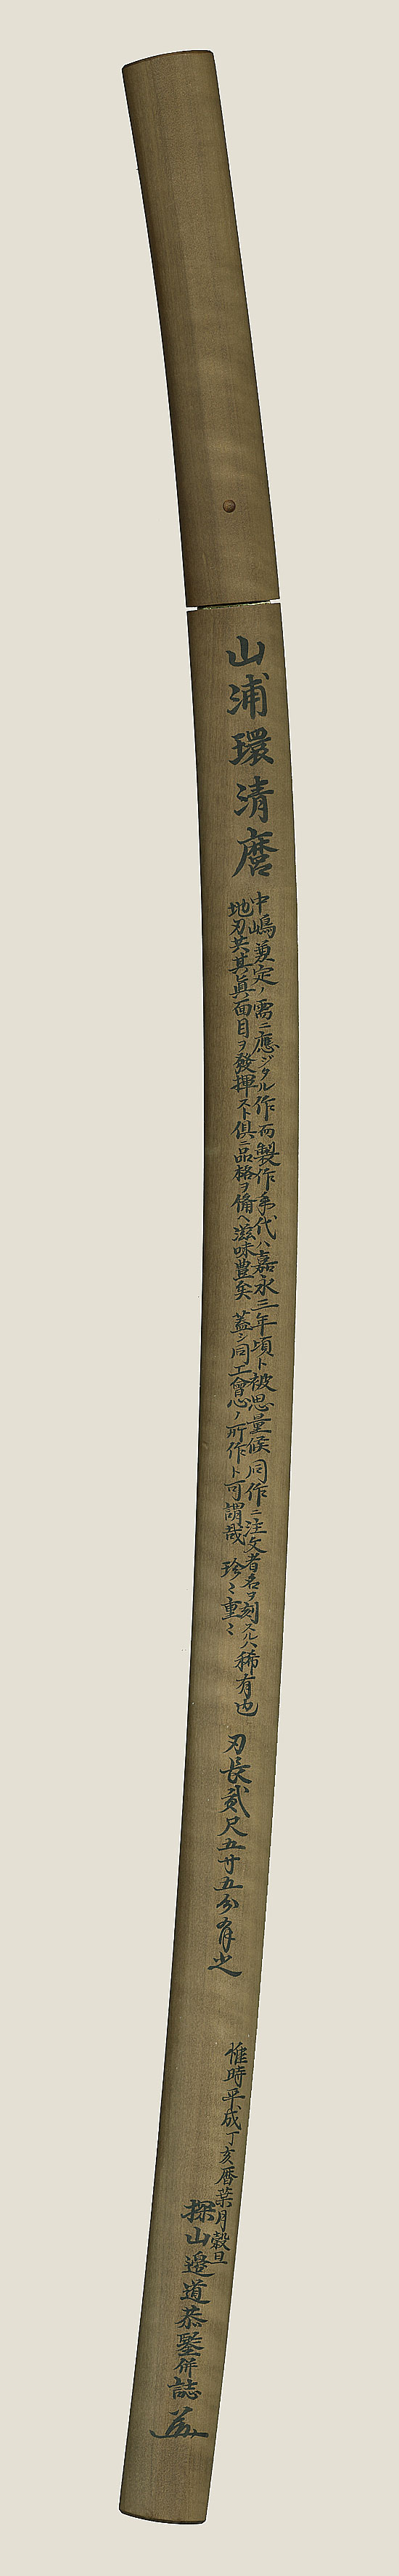 山浦環清麿
中嶋兼定ノ需ニ應ジタル作而製作年代ハ嘉永三年頃ト被思量候同作ニ注文者名ヲ刻スルハ稀有也
地刃共其眞面目ヲ發揮スト倶ニ品格ヲ備ヘ滋味豊矣蓋シ同工會心ノ所作ト可謂哉珍々重々
刃長貳尺五寸五分有之
惟時平成丁亥暦葉月穀旦
探山邉道恭鑒併誌